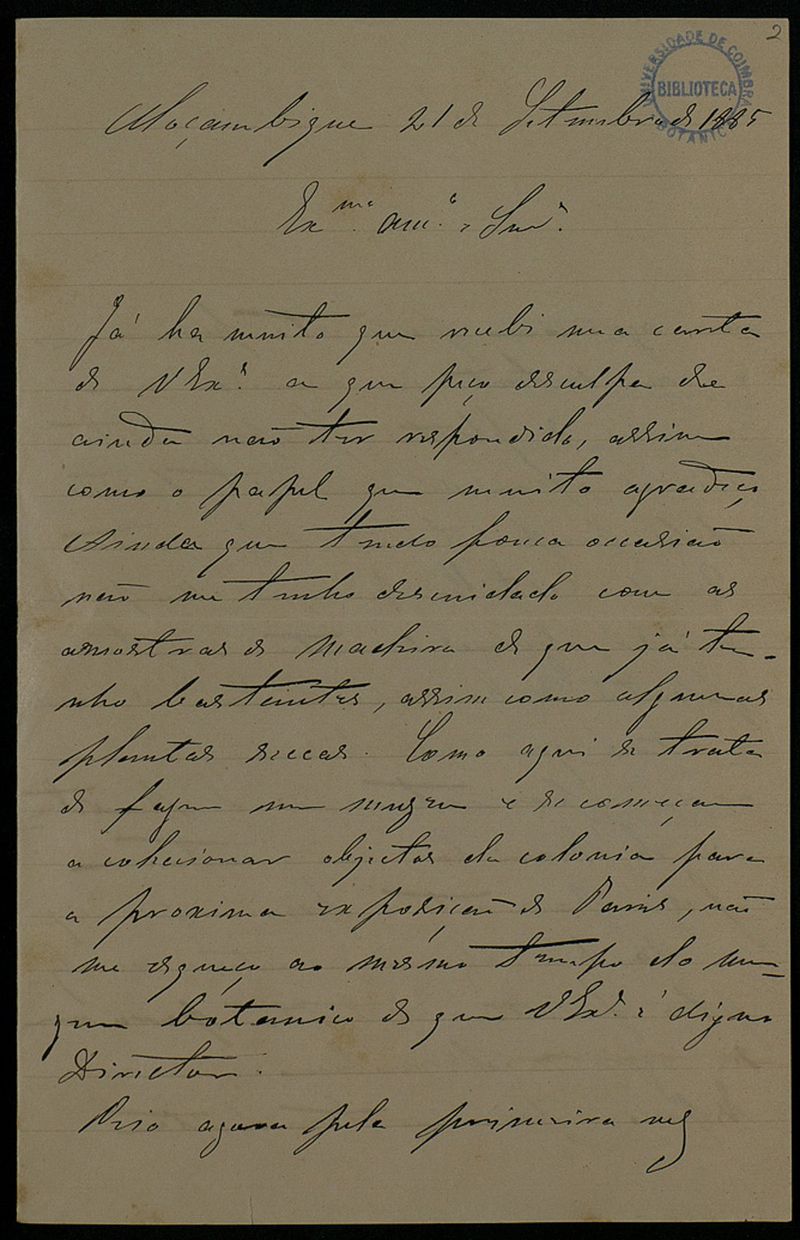 2
UNIVERSIDADE DE COIMBRA
BIBLIOTECA
BOTANICA
Moçambique 21 de Setembro de 1885
Exmo. Am.o e Snr.
Já ha muito que recebi uma carta
de V Exa. a que peço desculpa de
ainda não ter respondido, assim
como o papel que muito agradeço
Ainda que tendo pouca occasião
não me tenho descuidado com as
amostras de madeira de que já te-
nho bastantes, assim como algumas
plantas seccas. Como aqui se trata
de fazer um muzeu e se começam
a colecionar objectos da colonia para
a proxima exposição de Paris, não
me esqueço ao mesmo tempo do mu-
zeu botanico de que V Exa. é digno
Director.
agora pela primeira vez